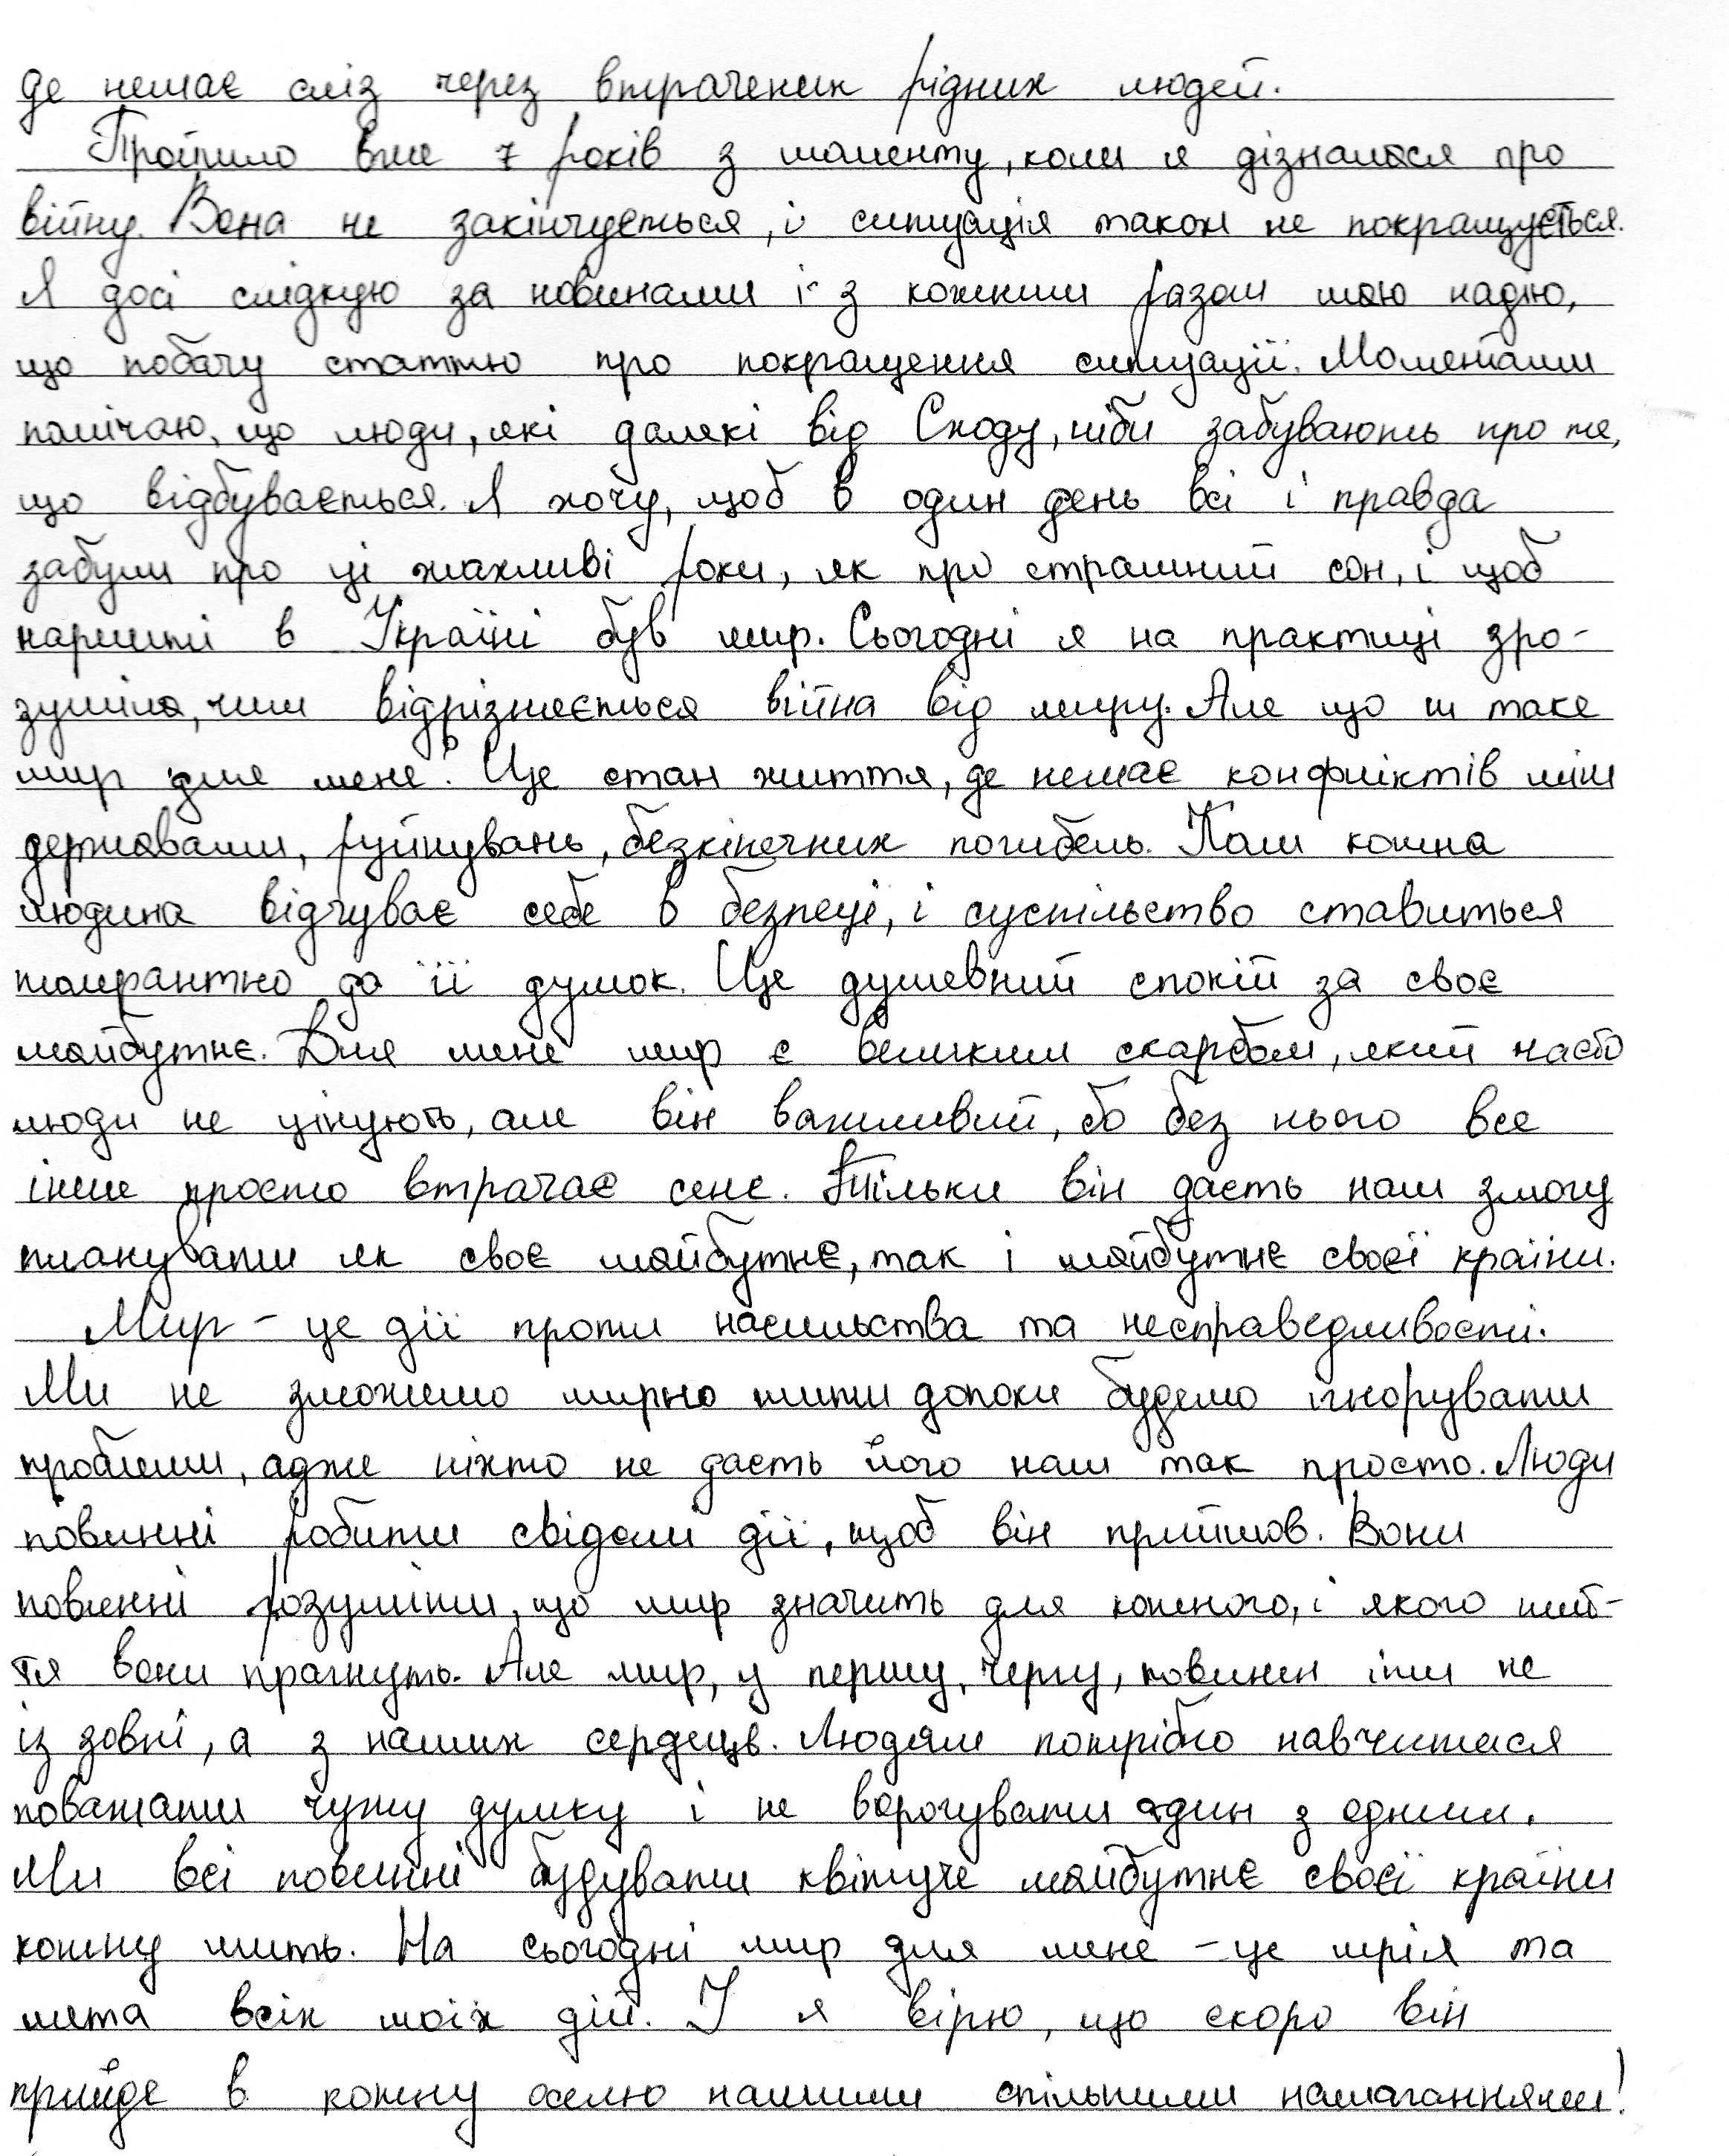 де немає сліз через втрачених рідних людей.
Пройшло вже 7 років з моменту, коли я дізналася про
війну. Вона не закінчується, і ситуація також не покращується.
Я досі слідкую за новинами і з кожним разом маю надію,
що побачу статтю про покращення ситуації. Моментами
помічаю, що люди, які далекі від Сходу, ніби забувають про те,
що відбувається. Я хочу, щоб в один день всі і правда
забули про ці жахливі роки, як про страшний сон, і щоб
нарешті в Україні був мир. Сьогодні я на практиці зро-
зуміла, чим відрізняється війна від миру. Але що ж таке
мир для мене? Це стан життя, де немає конфліктів між
державами, руйнувань, безкінечних погибель. Там кожна
людина відчуває себе в безпеці, і суспільство ставиться
толерантно до її думок. Це душевний спокій за своє
майбутнє. Для мене мир є великим скарбом, який часто
люди не цінують, але він важливий, бо без нього все
інше просто втрачає сенс. Тільки він дасть нам змогу
планувати як своє майбутнє, так і майбутнє своєї країни.
Мир - це дії проти насильства та несправедливості.
Ми не зможемо мирно жити допоки будемо ігнорувати
проблеми, адже ніхто не дасть його нам так просто. Люди
повинні робити свідомі дії, щоб він прийшов. Вони
повинні розуміти, що мир значить для кожного, і якого жит-
тя вони прагнуть. Але мир, у першу, чергу, повинен іти не
із зовні, а з наших сердець. Людям потрібно навчитися
поважати чужу думку і не ворогувати один з одним.
Ми всі повинні будувати квітуче майбутнє своєї країни
кожну мить. На сьогодні мир для мене - це мрія та
мета всіх моїх дій. І я вірю, що скоро він
прийде в кожну оселю нашими спільними намаганнями!